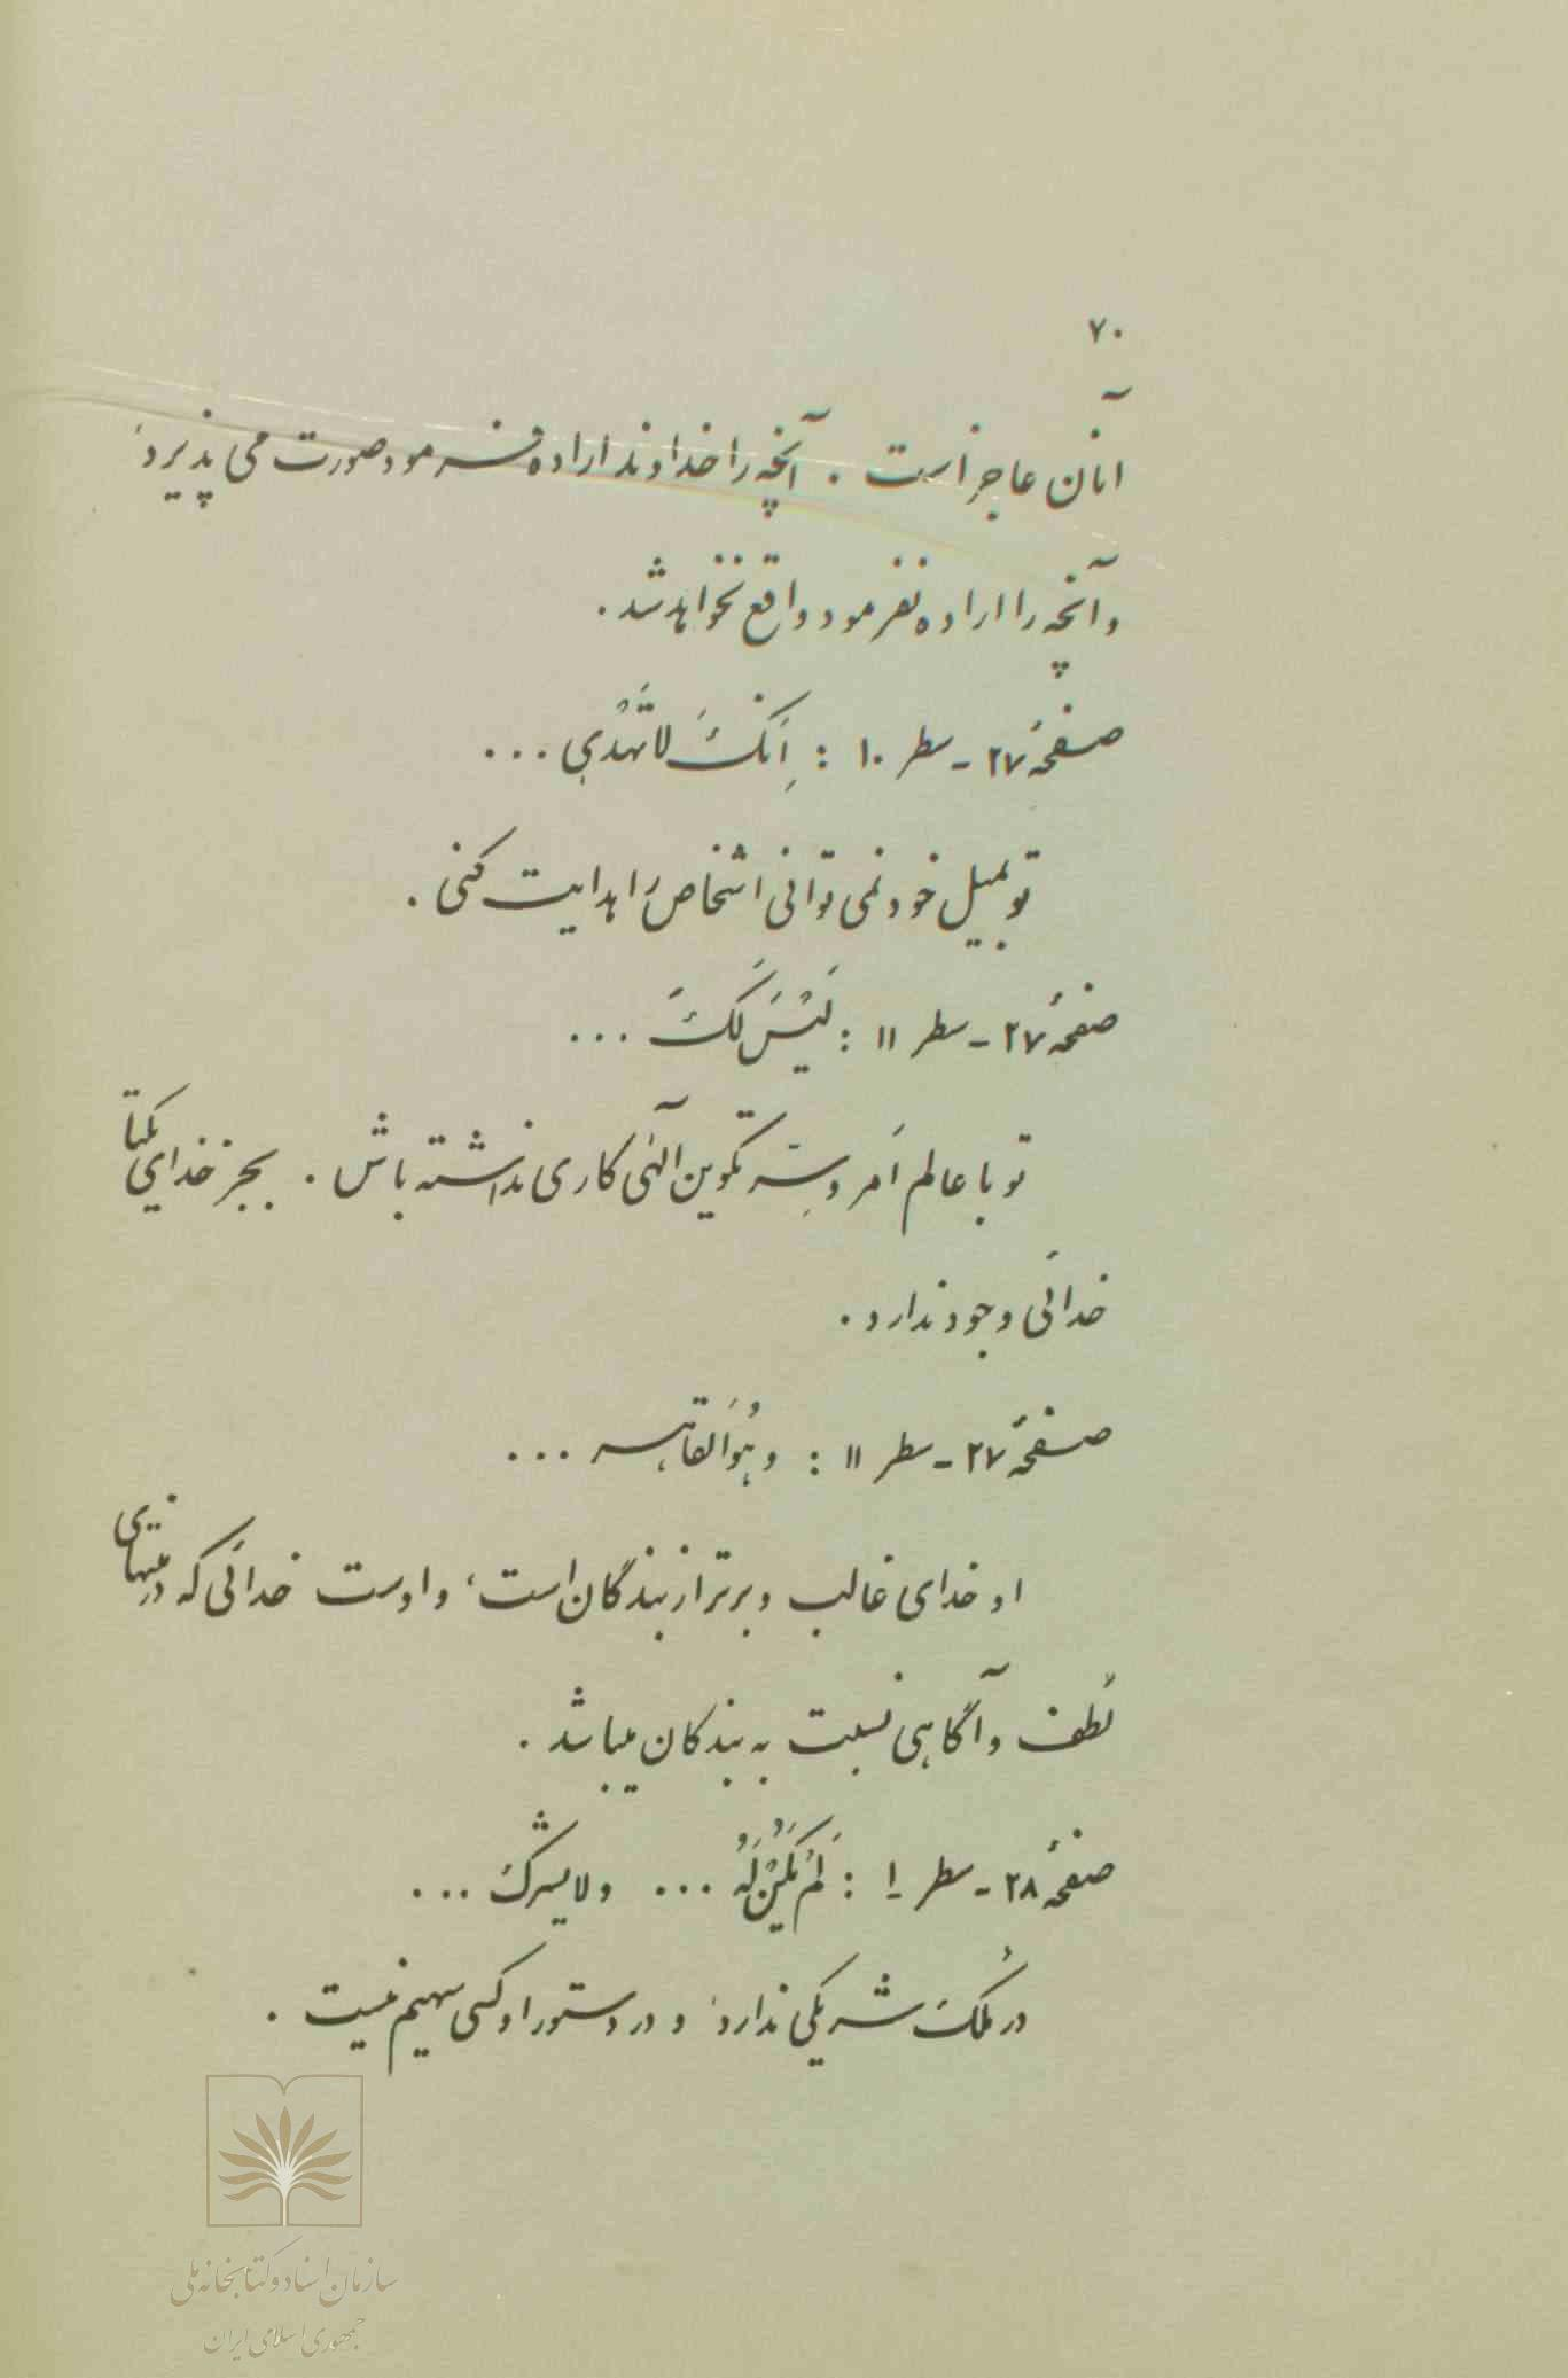 ۷۰
آنان عاجز است . آنچه را خداوند اراده فرمود صورت می پذیرد،
و آنچه را اراده نفرمود واقع نخواهد شد .
صفحهٔ ۲۷ - سطر ۱۰ : اِنَّکَ لاتَهْدی ...
تو بمیل خود نمی توانی اشخاص را هدایت کنی .
صفحهٔ ۲۷ - سطر ۱۱ : لَیْسَ لَکَ ...
تو با عالم اَمر و سِرّ تکوین الهی کاری نداشته باش . بجز خدای یکتا
خدائی وجود ندارد .
صفحهٔ ۲۷ - سطر ۱۱ : و هُوَ القاهر ...
او خدای غالب و برتر از بندگان است، و اوست خدائی که در منتهای
لُطف و آگاهی نسبت به بندگان میباشد .
صفحهٔ ۲۸ - سطر ۱ : لَمْ یَکُنْ لَهُ ... و لا یشرک ...
در مُلک شریکی ندارد، و در دستور او کسی سهیم نیست .
سازمان اسناد و کتابخانه ملی
جمهوری اسلامی ایران